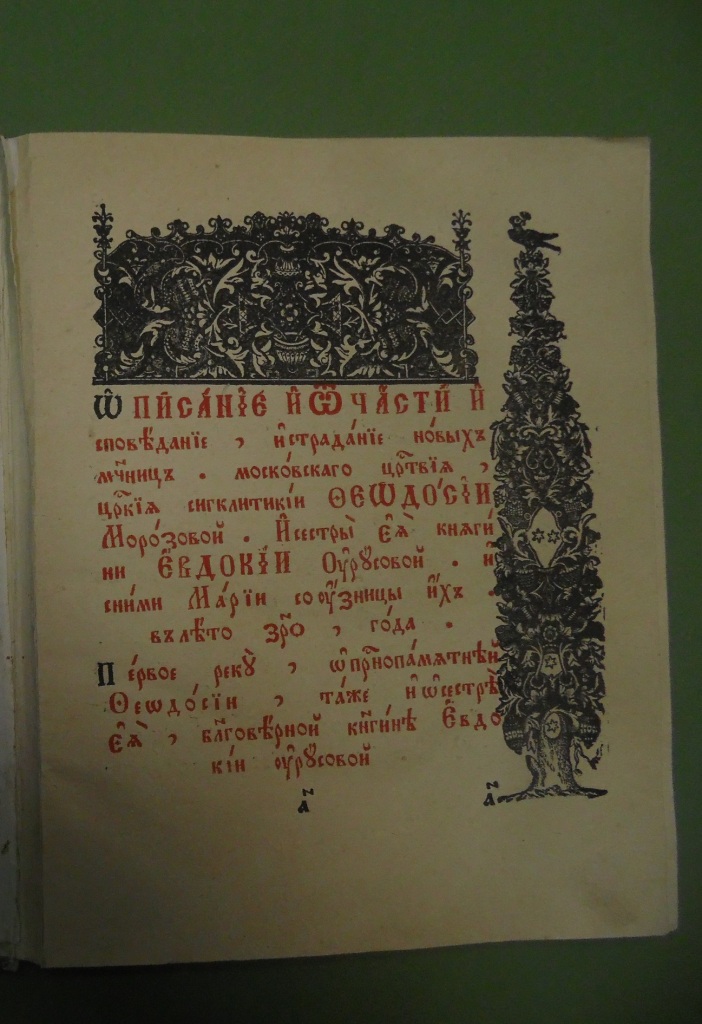 Ѡ҆писа́нїе и҆ ѿ ча́сти и҆
сповѣ́данїе , и҆ страда́нїе но́выхъ
мч҃ницъ . моско́вскаго црⷭ҇твїѧ ,
црⷭ҇кїѧ сигклитикі́и Ѳеѡдо́сїи
Моро́зовой . И҆ сестры̀ є҆ѧ̀ кнѧги́
ни Е҆ѵдокі́и Оу҆ру́совой . и҆
сни́ми Марі́и со оу҆́зницы и҆́хъ .
въ лѣ́то зр҃о , го́да .
Пе́рвое рекꙋ̀ , ѡ҆ прⷭ҇нопа́мѧтнѣй
Ѳеѡдо́сїи , та́же и҆ ѡ҆ сестрѣ̀
є҆ѧ̀ , бл҃говѣ́рной кнѧги́нѣ Е҆ѵдо
кі́и оу҆ру́совой